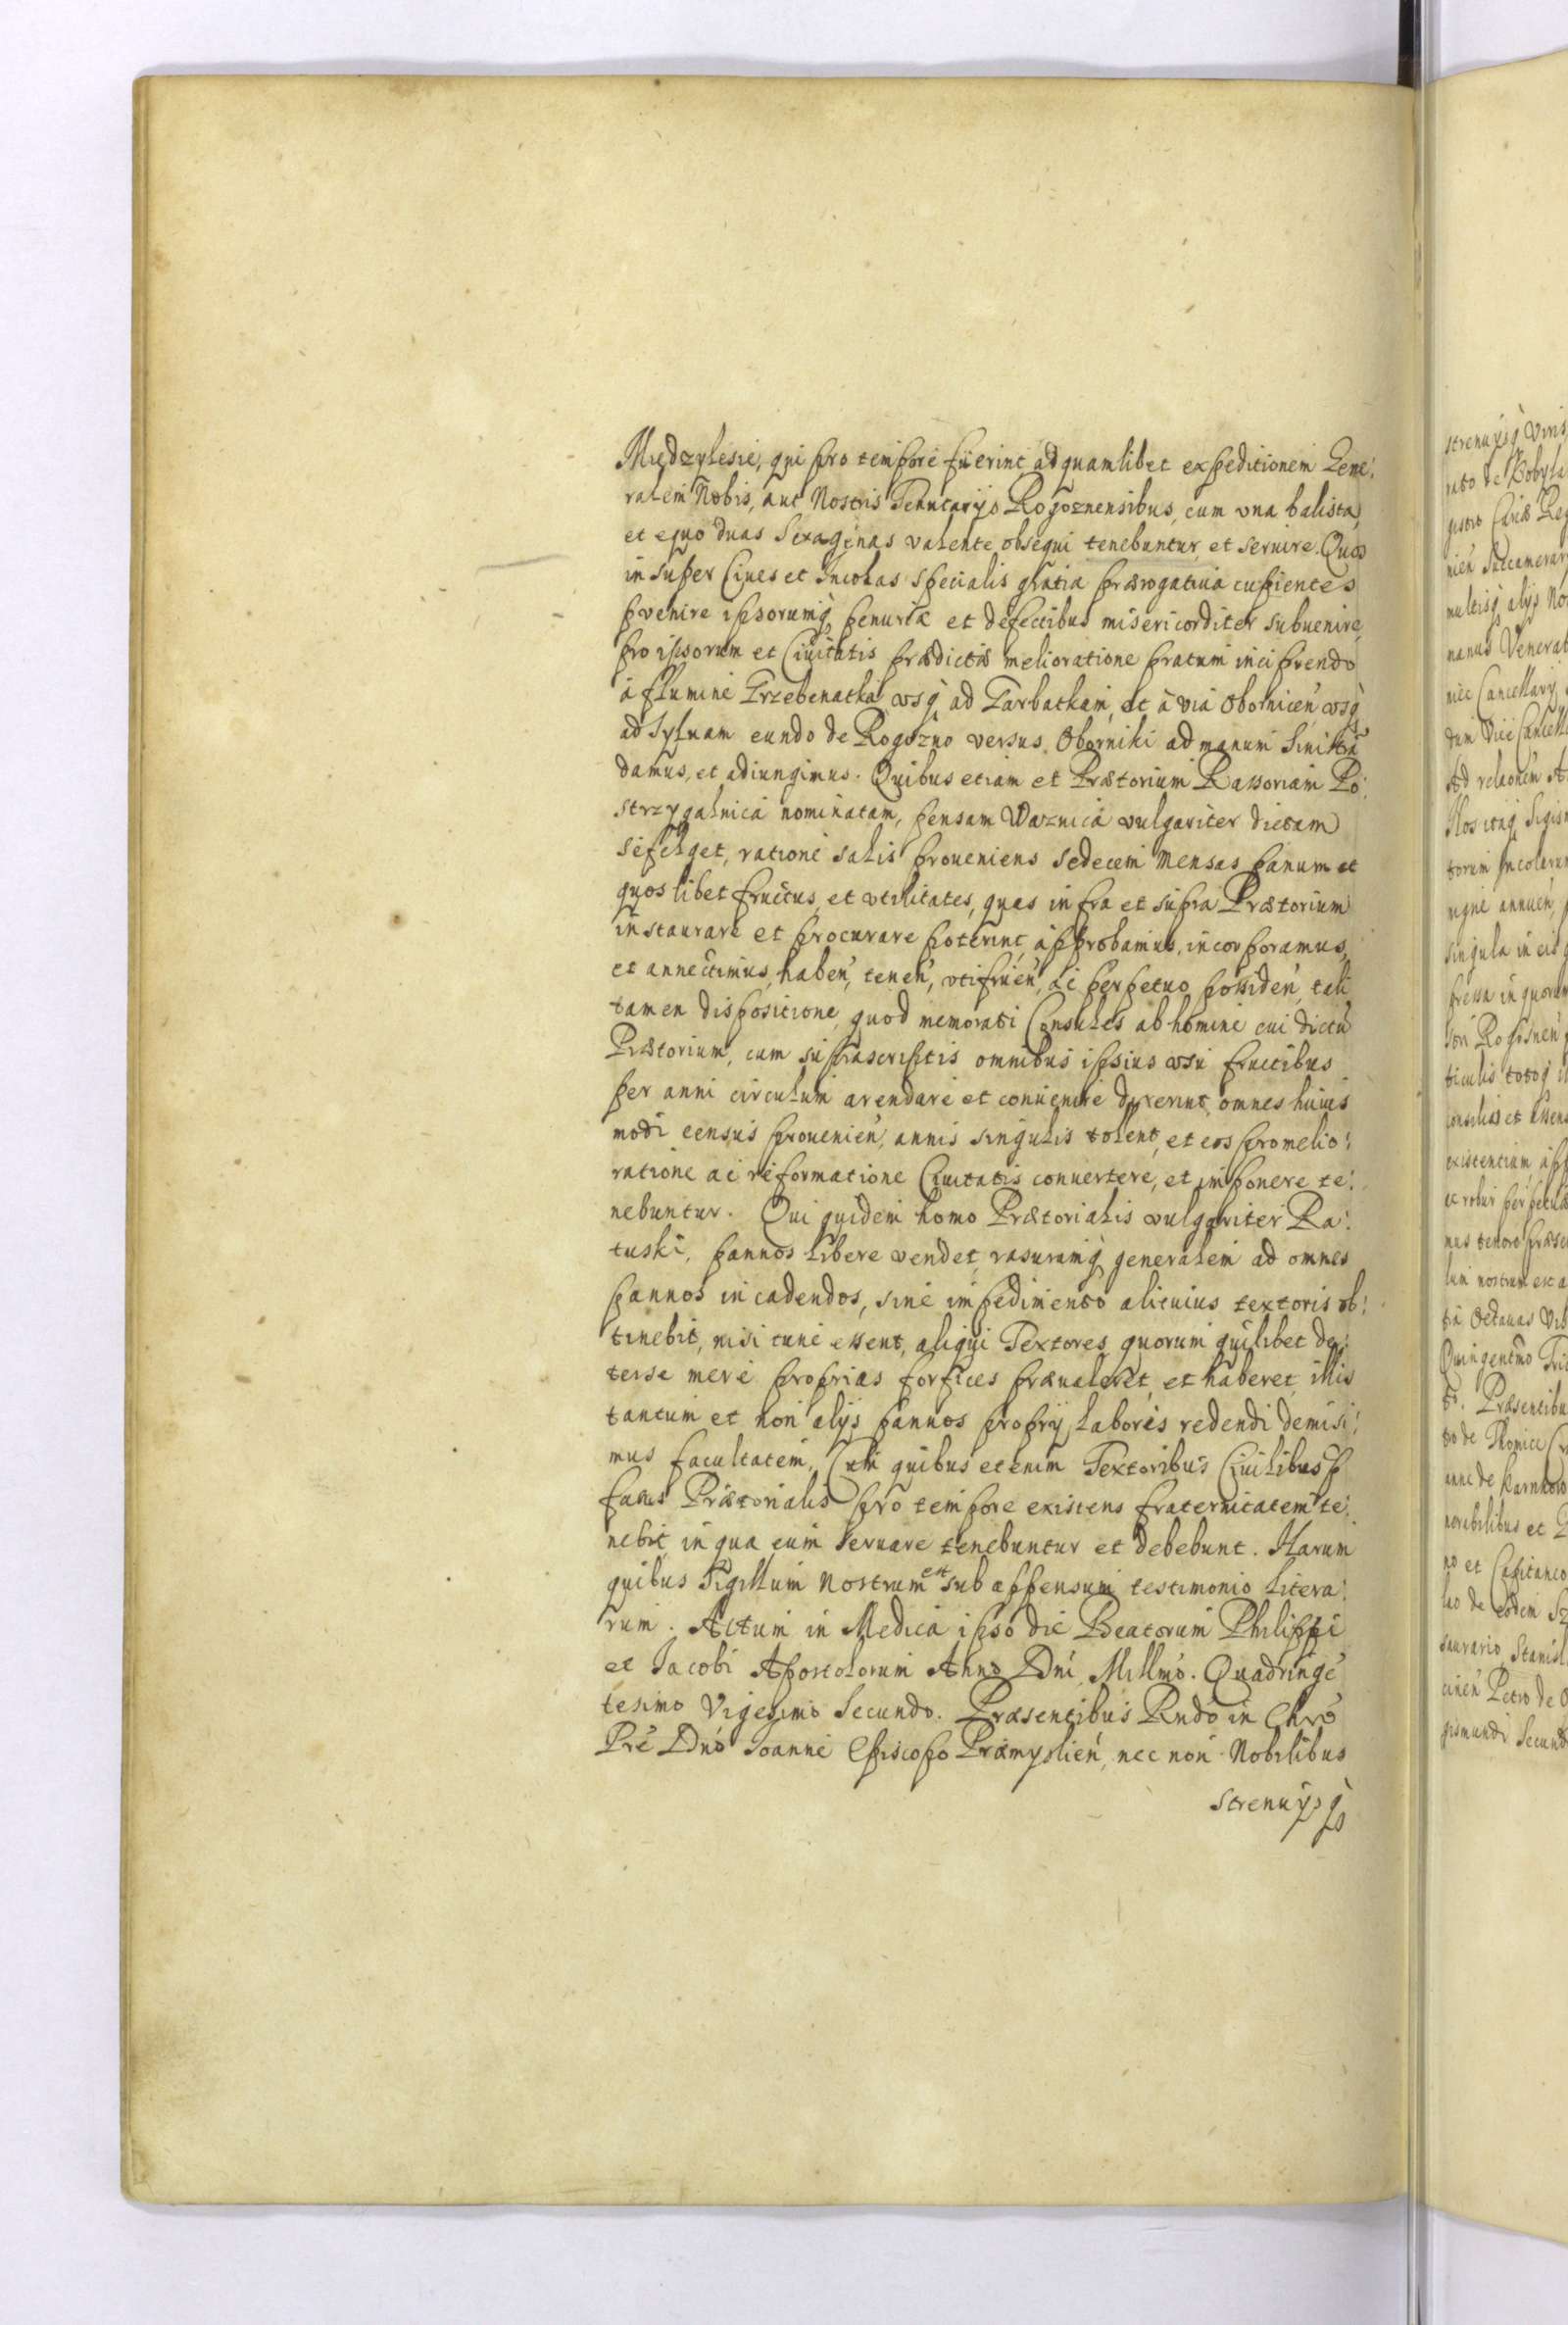 Międzylesie, qui pro tempore fuerint ad quamlibet expeditionem Gene:
ralem Nobis, aut Nostris Tenutarÿs Rogoznensibus, cum vna balista,
et equo duas Sexagenas valente obsequi tenebuntur, et seruire. Quos
in super Ciues et Incolas specialis gratia prærogatiua cupientes
pvenire ipsorumq penuriæ et defectibus misericorditer subuenire,
pro ipsorum et Ciuitatis prædictæ melioratione pratum incipiendo
a flumine Trzebenatka vsq ad Tarbatkam, et à via Obornicen vsq
ad Syluam eundo de Rogozno versus Oborniki ad manum Sinistra
damus, et adiungimus. Quibus etiam et Prætorium Rassoriam Po:
strzygalnica nominatam, pensam Waznica vulgariter dictam
sefelget, ratione salis proueniens sedecem mensas panum et
quoslibet fructus, et vtilitates, quas infra et supra Prætorium
instaurare et procurare poterint, approbamus, incorporamus,
et annectimus, haben, tenen, vtifruen, ac perpetuo possiden, tali
tamen dispositione, quod memorati Consules ab homine cui dictu
Prætorium, cum suprascriptis omnibus ipsius vsu fructibus
per anni circulum arendare et conuenire dixerint, omnes huius
modi census prouenien, annis singulis tolent, et eos pro melio:
ratione ac reformatione Ciuitatis conuertere, et imponere te:
nebuntur. Qui quidem homo Prætorialis vulgariter Ra:
tuski, pannos libere vendet, rasuramq generalem ad omnes
pannos incadendos, sine impedimento alicuius textoris ob:
tinebit, nisi tunc essent, aliqui Textores quorum quilibet de:
terse mere proprias forfices præualeret, et haberet, illis
tantum et non alijs pannos proprÿ laboris redendi demisi:
mus facultatem, Cum quibus etenim Textoribus Ciuilibus p
fatus Prætorialis pro tempore existens fraternitatem te:
nebit, in qua eum seruare tenebuntur et debebunt. Harum
quibus Sigillum Nostrum est sub appensum testimonio litera:
rum. Actum in Medica ipso die Beatorum Philippi
et Jacobi Apostolorum Anno Dni Millmo. Quadringe
tesimo Vigesimo Secundo. Præsentibus Rndo in Chro
Pre Dno Joanne Episcopo Præmyslien, nec non Nobilibus
strenuÿsq